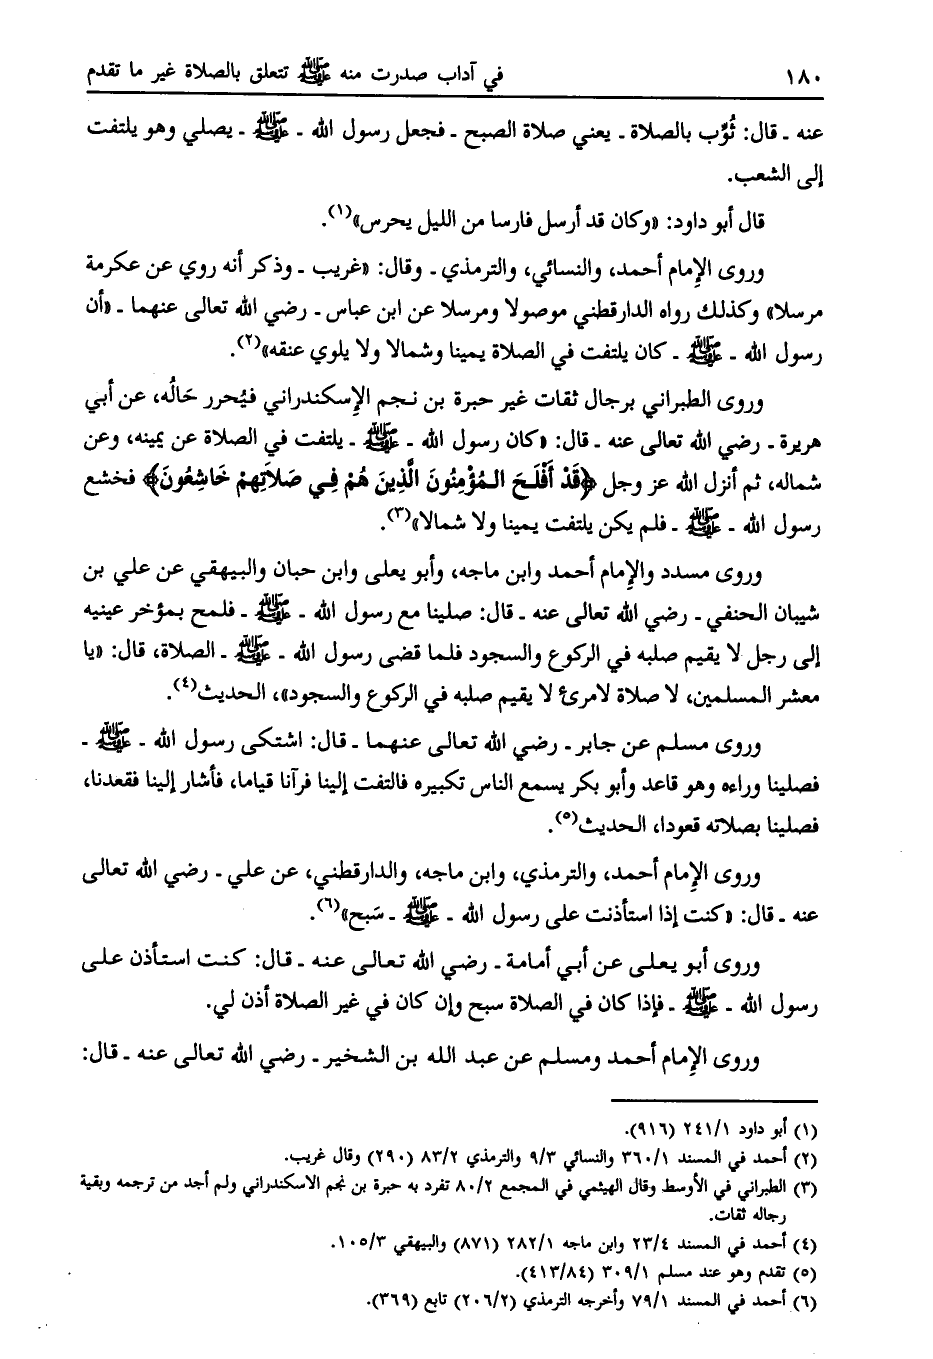 ١٨٠ في آداب صدرت منه ﷺ تتعلق بالصلاة غير ما تقدم
عنه ـ قال: ثُوِّب بالصلاة ـ يعني صلاة الصبح ـ فجعل رسول الله ـ ﷺ ـ يصلي وهو يلتفت
إلى الشعب.
قال أبو داود: «وكان قد أرسل فارسا من الليل يحرس»(١).
وروى الإمام أحمد، والنسائي، والترمذي ـ وقال: «غريب ـ وذكر أنه روي عن عكرمة
مرسلا» وكذلك رواه الدارقطني موصولا ومرسلا عن ابن عباس ـ رضي الله تعالى عنهما ـ «أن
رسول الله ـ ﷺ ـ كان يلتفت في الصلاة يمينا وشمالا ولا يلوي عنقه»(٢).
وروى الطبراني برجال ثقات غير حبرة بن نجم الإسكندراني فيُحرر حَالُه، عن أبي
هريرة ـ رضي الله تعالى عنه ـ قال: «كان رسول الله ـ ﷺ ـ يلتفت في الصلاة عن يمينه، وعن
شماله، ثم أنزل الله عز وجل ﴿قَدْ أَفْلَحَ المُؤْمِنُونَ الَّذِينَ هُمْ فِي صَلاَتِهِمْ خَاشِعُونَ﴾ فخشع
رسول الله ـ ﷺ ـ فلم يكن يلتفت يمينا ولا شمالا»(٣).
وروى مسدد والإمام أحمد وابن ماجه، وأبو يعلى وابن حبان والبيهقي عن علي بن
شيبان الحنفي ـ رضي الله تعالى عنه ـ قال: صلينا مع رسول الله ـ ﷺ ـ فلمح بمؤخر عينيه
إلى رجل لا يقيم صلبه في الركوع والسجود فلما قضى رسول الله ـ ﷺ ـ الصلاة، قال: «يا
معشر المسلمين، لا صلاة لامرئ لا يقيم صلبه في الركوع والسجود»، الحديث(٤).
وروى مسلم عن جابر ـ رضي الله تعالى عنهما ـ قال: اشتكى رسول الله ـ ﷺ ـ
فصلينا وراءه وهو قاعد وأبو بكر يسمع الناس تكبيره فالتفت إلينا فرآنا قياما، فأشار إلينا فقعدنا،
فصلينا بصلاته قعودا، الحديث(٥).
وروى الإمام أحمد، والترمذي، وابن ماجه، والدارقطني، عن علي ـ رضي الله تعالى
عنه ـ قال: «كنت إذا استأذنت على رسول الله ـ ﷺ ـ سَبح»(٦).
وروى أبو يعلى عن أبي أمامة ـ رضي الله تعالى عنه ـ قال: كنت استأذن على
رسول الله ـ ﷺ ـ فإذا كان في الصلاة سبح وإن كان في غير الصلاة أذن لي.
وروى الإمام أحمد ومسلم عن عبد الله بن الشخير ـ رضي الله تعالى عنه ـ قال:
(١) أبو داود ٢٤١/١ (٩١٦).
(٢) أحمد في المسند ٣٦٠/١ والنسائي ٩/٣ والترمذي ٨٣/٢ (٢٩٠) وقال غريب.
(٣) الطبراني في الأوسط وقال الهيثمي في المجمع ٨٠/٢ تفرد به حبرة بن نجم الاسكندراني ولم أجد من ترجمه وبقية
رجاله ثقات.
(٤) أحمد في المسند ٢٣/٤ وابن ماجه ٢٨٢/١ (٨٧١) والبيهقي ١٠٥/٣.
(٥) تقدم وهو عند مسلم ٣٠٩/١ (٤١٣/٨٤).
(٦) أحمد في المسند ٧٩/١ وأخرجه الترمذي (٢٠٦/٢) تابع (٣٦٩).